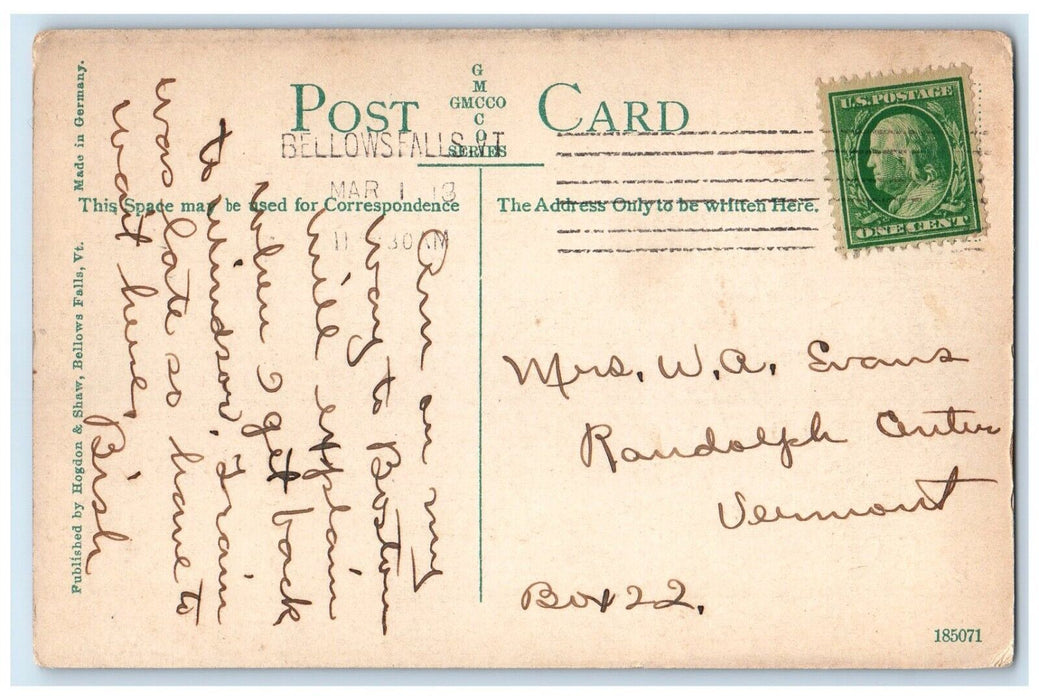 POST CARD
G
M
GMCCO
C
O
SERIES
BELLOWS FALLS, VT
MAR 1
30 AM
U.S. POSTAGE
ONE CENT
This Space may be used for Correspondence
The Address Only to be written Here.
Am on my
way to Boston
will explain
when I get back
to Windsor. Train
was late so have to
wait here,
Bish
Mrs. W. A. Evans
Randolph Center
Vermont
Box 22.
185071
Published by Hogdon & Shaw, Bellows Falls, Vt. Made in Germany.